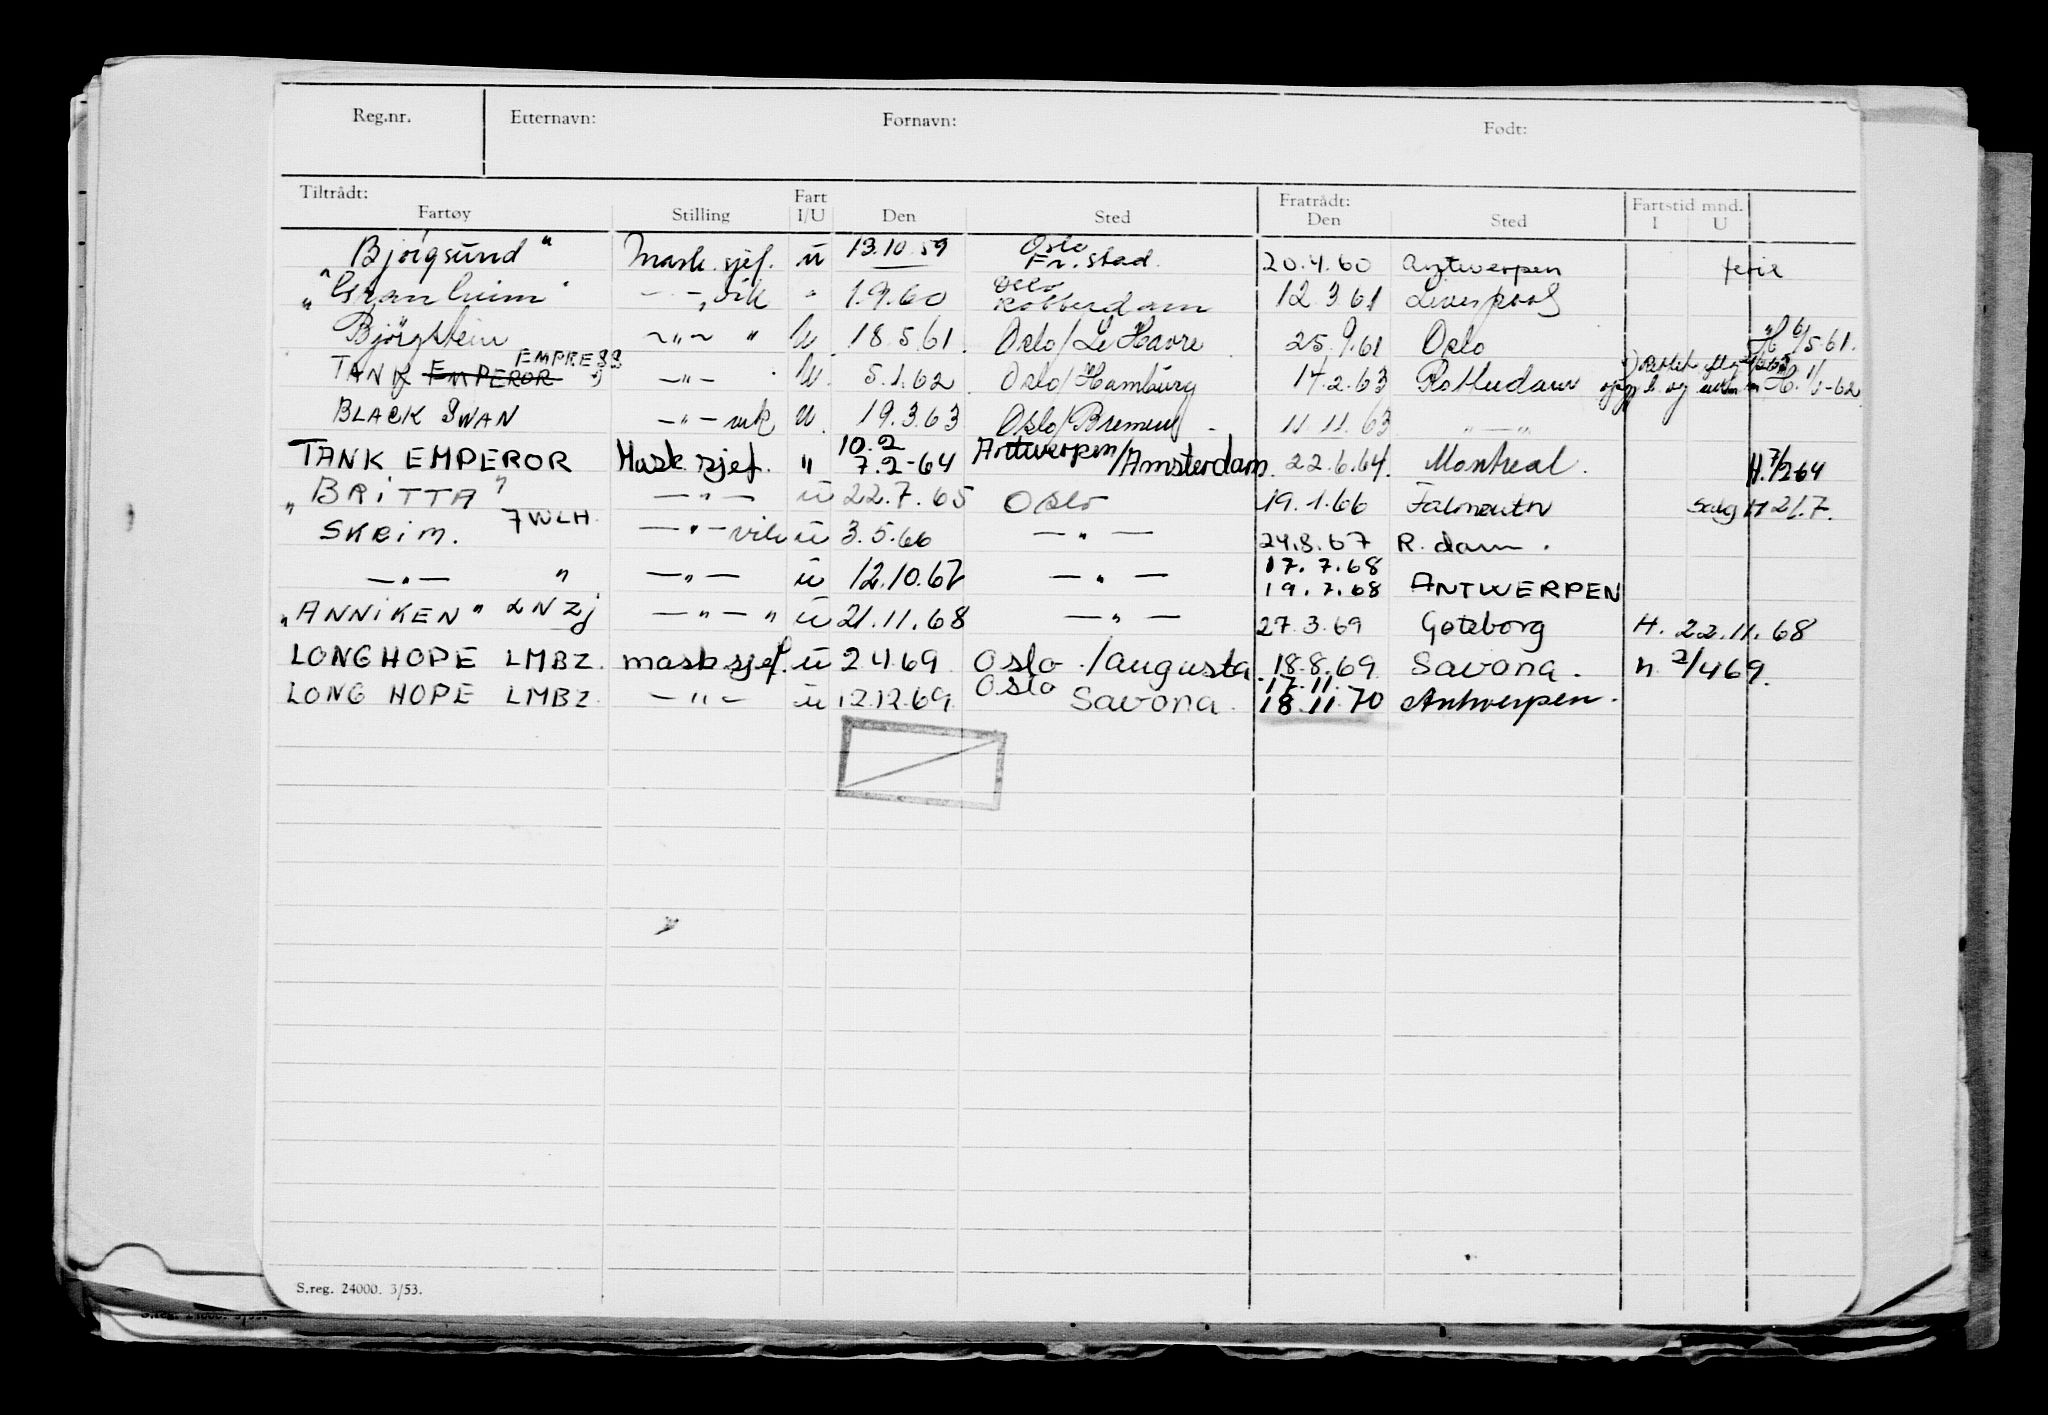 Reg.nr. Etternavn: Fornavn: Født:
Tiltrådt: Fart Fratrådt: Fartstid mnd.
Fartøy Stilling I/U Den Sted Den Sted I U
Bjørgsund" Mask. sjef. ü 13.10.59 Oslo Fr.stad. 20.4.60 Antwerpen ferie
"Granheim" — " — vik " 1.9.60 Oslo Rotterdam 12.3.61 Liverpool
Bjørgstein — " — " U. 18.5.61. Oslo/Le Havre 25.9.61 Oslo H 6/5-61.
TANK EMPEROR EMPRESS — " — U. 5.1.62 Oslo/Hamburg 14.2.63 Rotterdam H. 1/1-62
BLACK SWAN — " — vik U. 19.3.63 Oslo/Bremen 11.11.63 — " —
TANK EMPEROR Mask sjef. " 10.2 7.2-64 Antwerpen/Amsterdam. 22.6.64. Montreal. H.7/264
"BRITTA" — " — ü 22.7.65 Oslo 19.1.66 Falmouth Salg H 21.7.
SKRIM. 7WLH — " — vik ü 3.5.66 — " — 24.8.67 R.dam.
— " — " — " — ü 12.10.67 — " — 17.7.68 19.7.68 ANTWERPEN
"ANNIKEN" LNZJ — " — " ü 21.11.68 — " — 27.3.69 Gøteborg H. 22.11.68
LONGHOPE LMBZ. mask sjef. ü 2.4.69 Oslo./Augusta 18.8.69 Savona. h. 2/469.
LONG HOPE LMBZ. — " — ü 12.12.69 Oslo Savona. 17.11. 18.11.70 Antwerpen.
S.reg. 24000. 3/53.